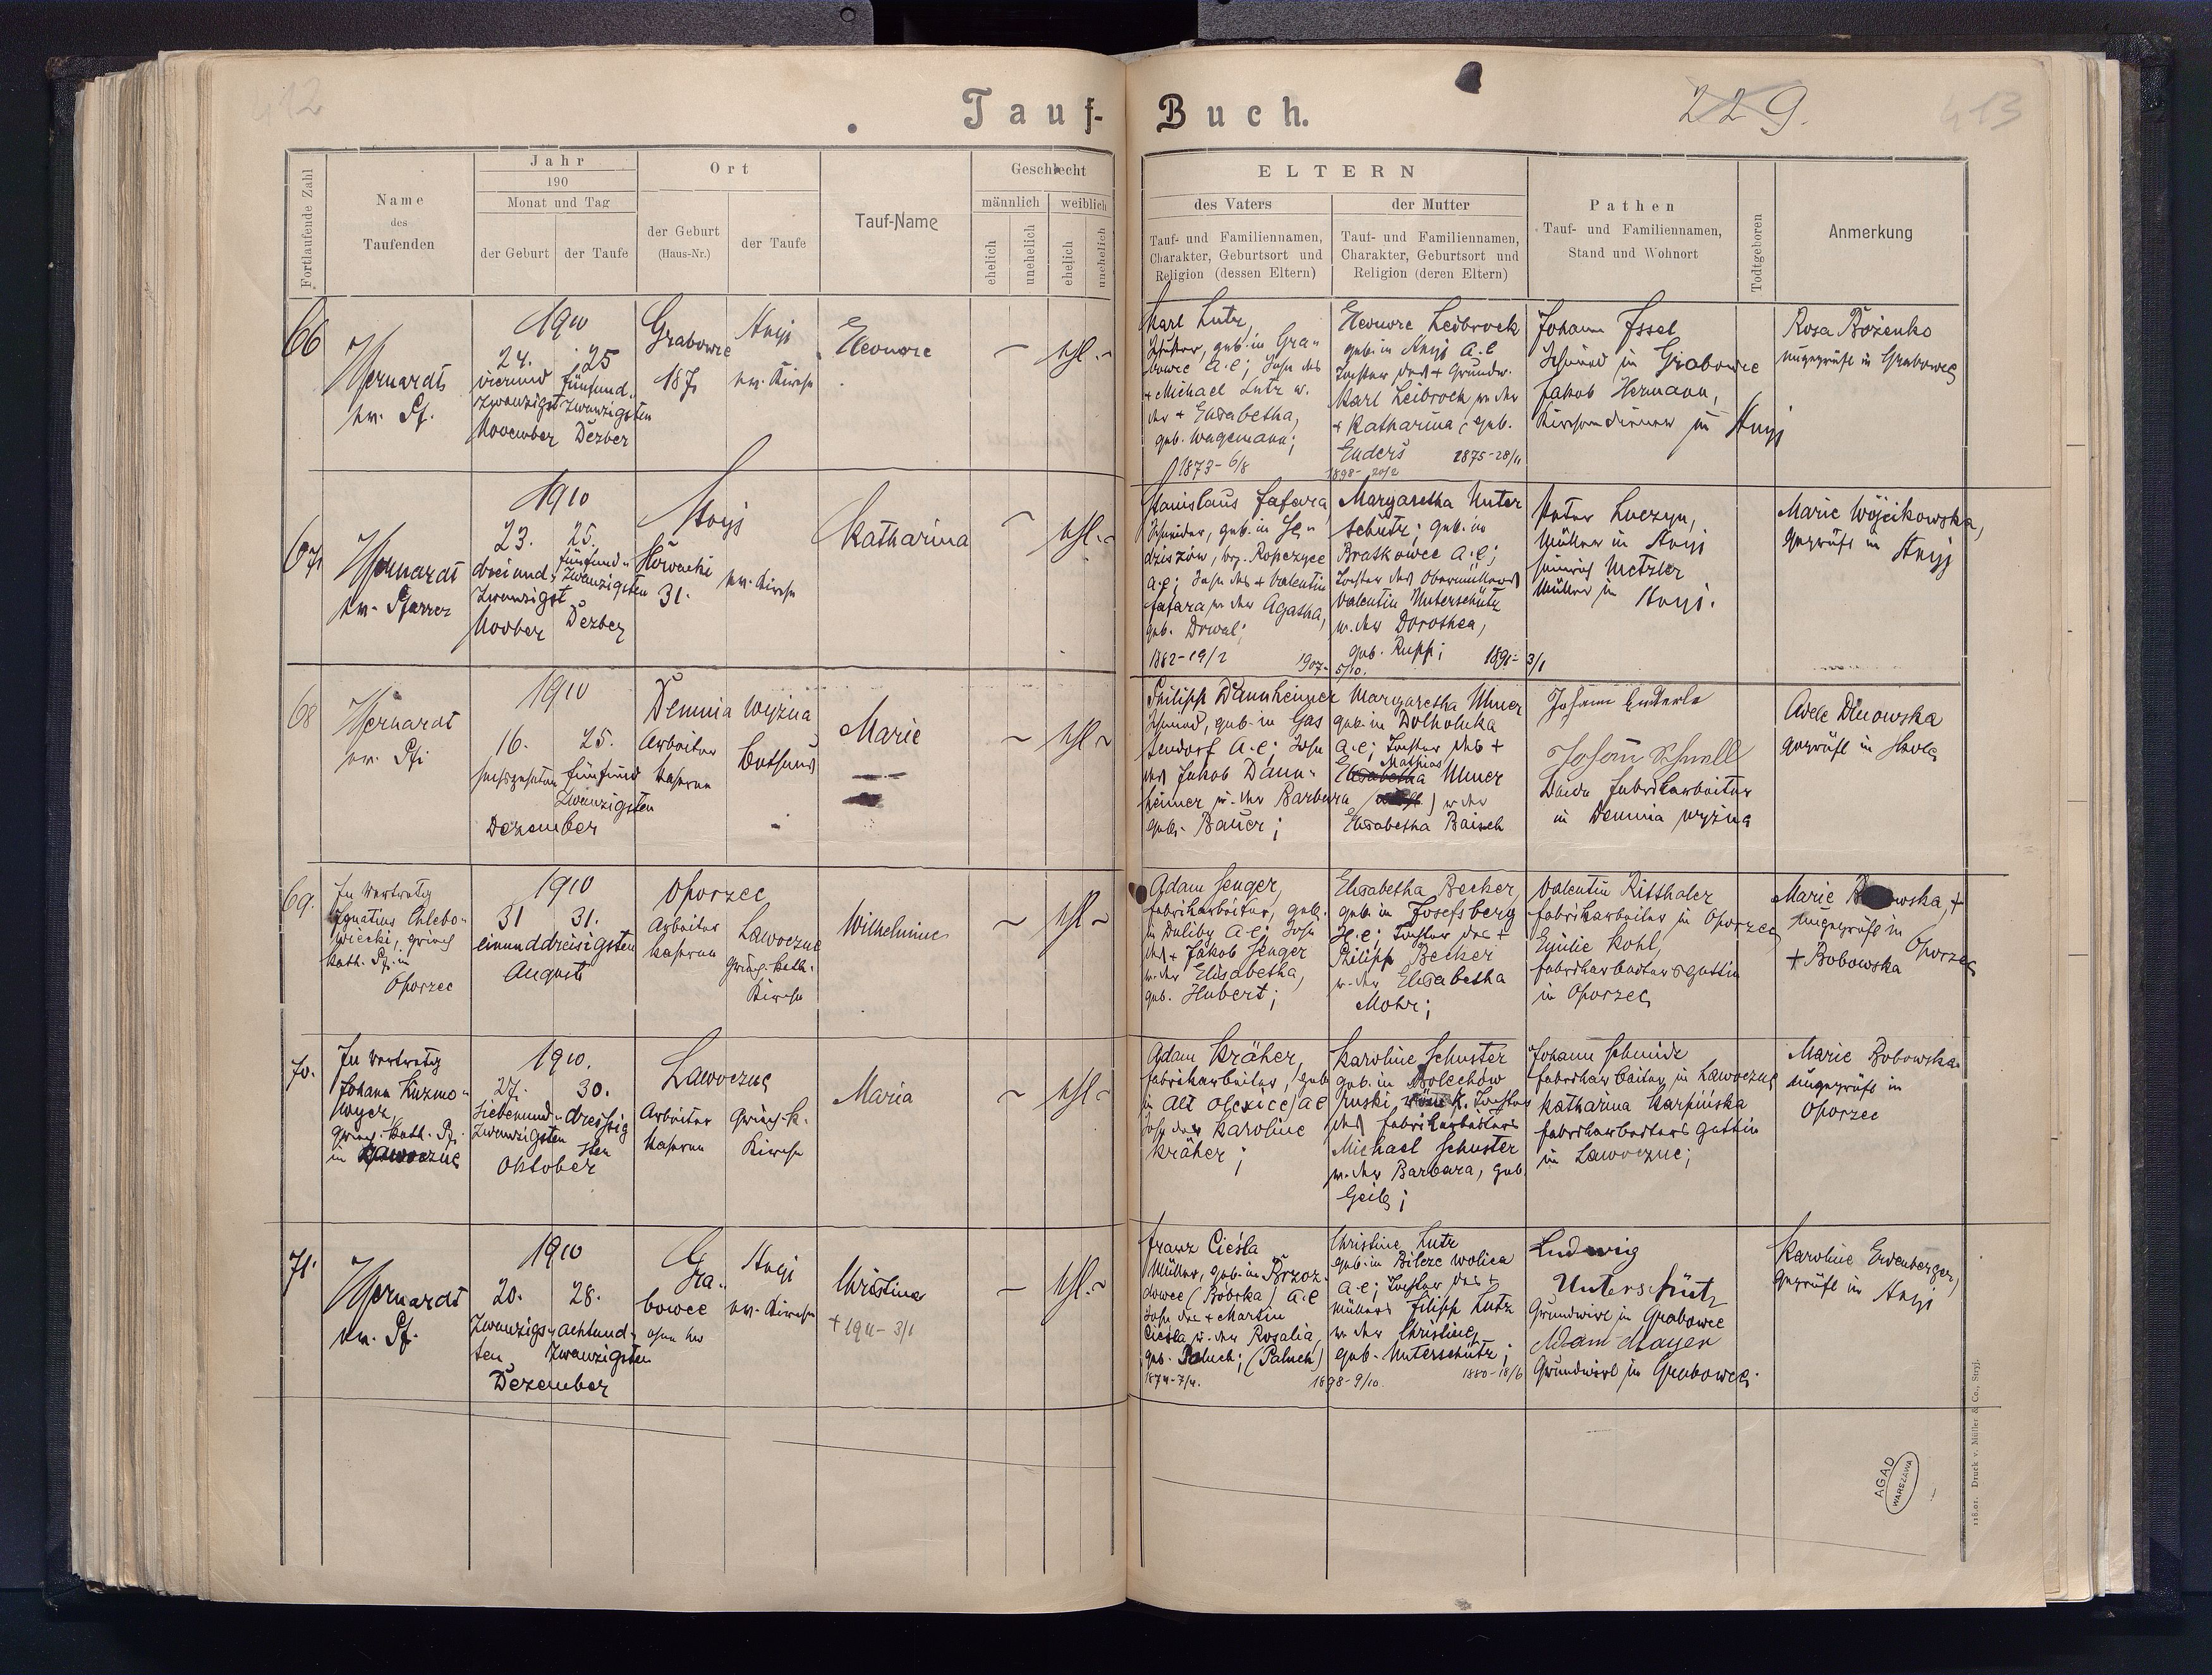 412
Tauf-
Buch.
229.
413
Fortlaufende Zahl
Name
des
Taufenden
Jahr
190
Monat und Tag
der Geburt
der Taufe
Ort
der Geburt
(Haus-Nr.)
der Taufe
Tauf-Name
Geschlecht
männlich
weiblich
ehelich
unehelich
ehelich
unehelich
ELTERN
des Vaters
Tauf- und Familiennamen,
Charakter, Geburtsort und
Religion (dessen Eltern)
der Mutter
Tauf- und Familiennamen,
Charakter, Geburtsort und
Religion (deren Eltern)
Pathen
Tauf- und Familiennamen,
Stand und Wohnort
Todtgeboren
Anmerkung
66
ev. Pf.
1910
24.
vierund
zwanzigst
November
25
fünfund
zwanzigsten
Dezber
Grabowce
187
Stryj
ev. Kirche
Eleonore
ehl.
Karl Lutz,
geb. in Gra-
bowce A.C; Sohn des
+ Michael Lutz u.
der + Elisabetha,
geb. Wagemann;
1873-6/8
1898-20/2
Eleonore Leibrock
geb. in Stryj A.C
Tochter des + Grundw.
Karl Leibrock u. der
+ Katharina, geb.
Enders
1875-28/11
Johann Issel
Schmied in Grabowce
Jakob Hermann,
Kirchendiener in Stryj
Rosa Bożenko
ungeprüft in Grabowce
67
ev. Pfarrer
1910
23.
dreiund-
zwanzigst
Novber
25.
fünfund-
zwanzigsten
Dezber
Stryj
Słowacki
31.
ev. Kirche
Katharina
ehl.
Stanislaus Fafara
Schneider, geb. in Sę-
dziszów, bez. Ropczyce
Sohn des + Valentin
Fafara u. der Agatha,
geb. Drwal;
1882-19/2
1907-5/10.
Margaretha Unter
schütz; geb. in
Bratkowce A.C;
Tochter des Obermüllers
Valentin Unterschütz
u. der Dorothea,
geb. Rupp;
3/1
Peter Luczyn,
Müller in Stryj
Heinrich Metzler
Müller in Stryj.
Marie Wójcikowska,
geprüft in Stryj
68
ev. Pf.
1910
16.
sechszehnten
25.
fünfund
zwanzigsten
Dezember
Demnia wyżna
Arbeiter
kaserne
Bethaus
Marie
ehl.
Philipp Dannheimer
Schmied, geb. in Gas
sendorf A.C; Sohn
des Jakob Dann-
heimer u. der Barbara
geb. Bauer;
Margaretha Ulmer
geb. in Dolholuka
A.C; Tochter des +
Mathias
Elisabetha Ulmer
u. der
Elisabetha Baisch
Johann Enderle
Johann Schnell
beide Fabrikarbeiter
in Demnia wyżna
Adele Dlnowska
geprüft in Skole
69.
In Vertretg
Ignatius Chlebo-
wiecki, griech
kath. Pf. in
Oporzec
1910
31
31.
einunddreisigsten
August
Oporzec
Arbeiter
kaserne
Lawoczne
Griech-kath.
Kirche
Wilhelmine
ehl
Adam Senger,
Fabrikarbeiter, geb.
in Duliby A.C; Sohn
des + Jakob Senger
u. der Elisabetha,
geb. Hubert;
Elisabetha Becker,
geb. in Josefsberg
H.C; Tochter des +
Philipp Becker
u. der Elisabetha
Mohr;
Valentin Ritthaler
Fabrikarbeiter in Oporzec
Emilie Kohl,
Fabrikarbeitersgattin
in Oporzec
Marie
+
ungeprüft in
Oporzec
+ Bobowska
70.
In Vertretg
Johann Kuzmo-
wycz
Griech-kath. Pf.
in Lawoczne
1910.
27.
siebenund-
zwanzigsten
30.
dreissig
sten
Oktober
Lawoczne
Arbeiter
kaserne
Griech-k.
Kirche
Maria
ehl
Adam Kräher,
Fabrikarbeiter, geb
in Alt Olexice, A.C
Sohn der Karoline
Kräher;
Karoline Schuster
geb. in Bolechów
ruski röm k. Tochter
des Fabrikarbeiters
Michael Schuster
u. der Barbara, geb
Geib;
Johann Schmidt
Fabrikarbeiter in Lawoczne
Katharina Karpińska
Fabrikarbeiters gattin
in Lawoczne;
Marie Bobowska
ungeprüft in
Oporzec
71.
ev. Pf.
1910
20.
zwanzigs-
ten
28.
achtund-
zwanzigsten
Dezember
Gra-
bowce
ohne Nr
Stryj
ev. Kirche
Christine
+ 1911-3/1
ehl.
Franz Cieśla
Müller, geb. in Brzoz-
dowce (Bóbrka) A.C
Sohn des + Martin
Cieśla u. der Rosalia,
geb. Paluch; (Paluch)
1874-7/4.
1898-9/10.
Christine Lutz
geb. in Bilcze wolica
A.C; Tochter des +
Müllers Filipp Lutz
u. der Christine,
geb. Unterschütz;
1880-18/6
Ludwig
Unterschütz
Grundwirt in Grabowce
Adam Mayer
Grundwirt in Grabowce.
Karoline Erdenberger,
geprüft in Stryj
AGAD
WARSZAWA
Druck v. Müller & Co., Stryj.